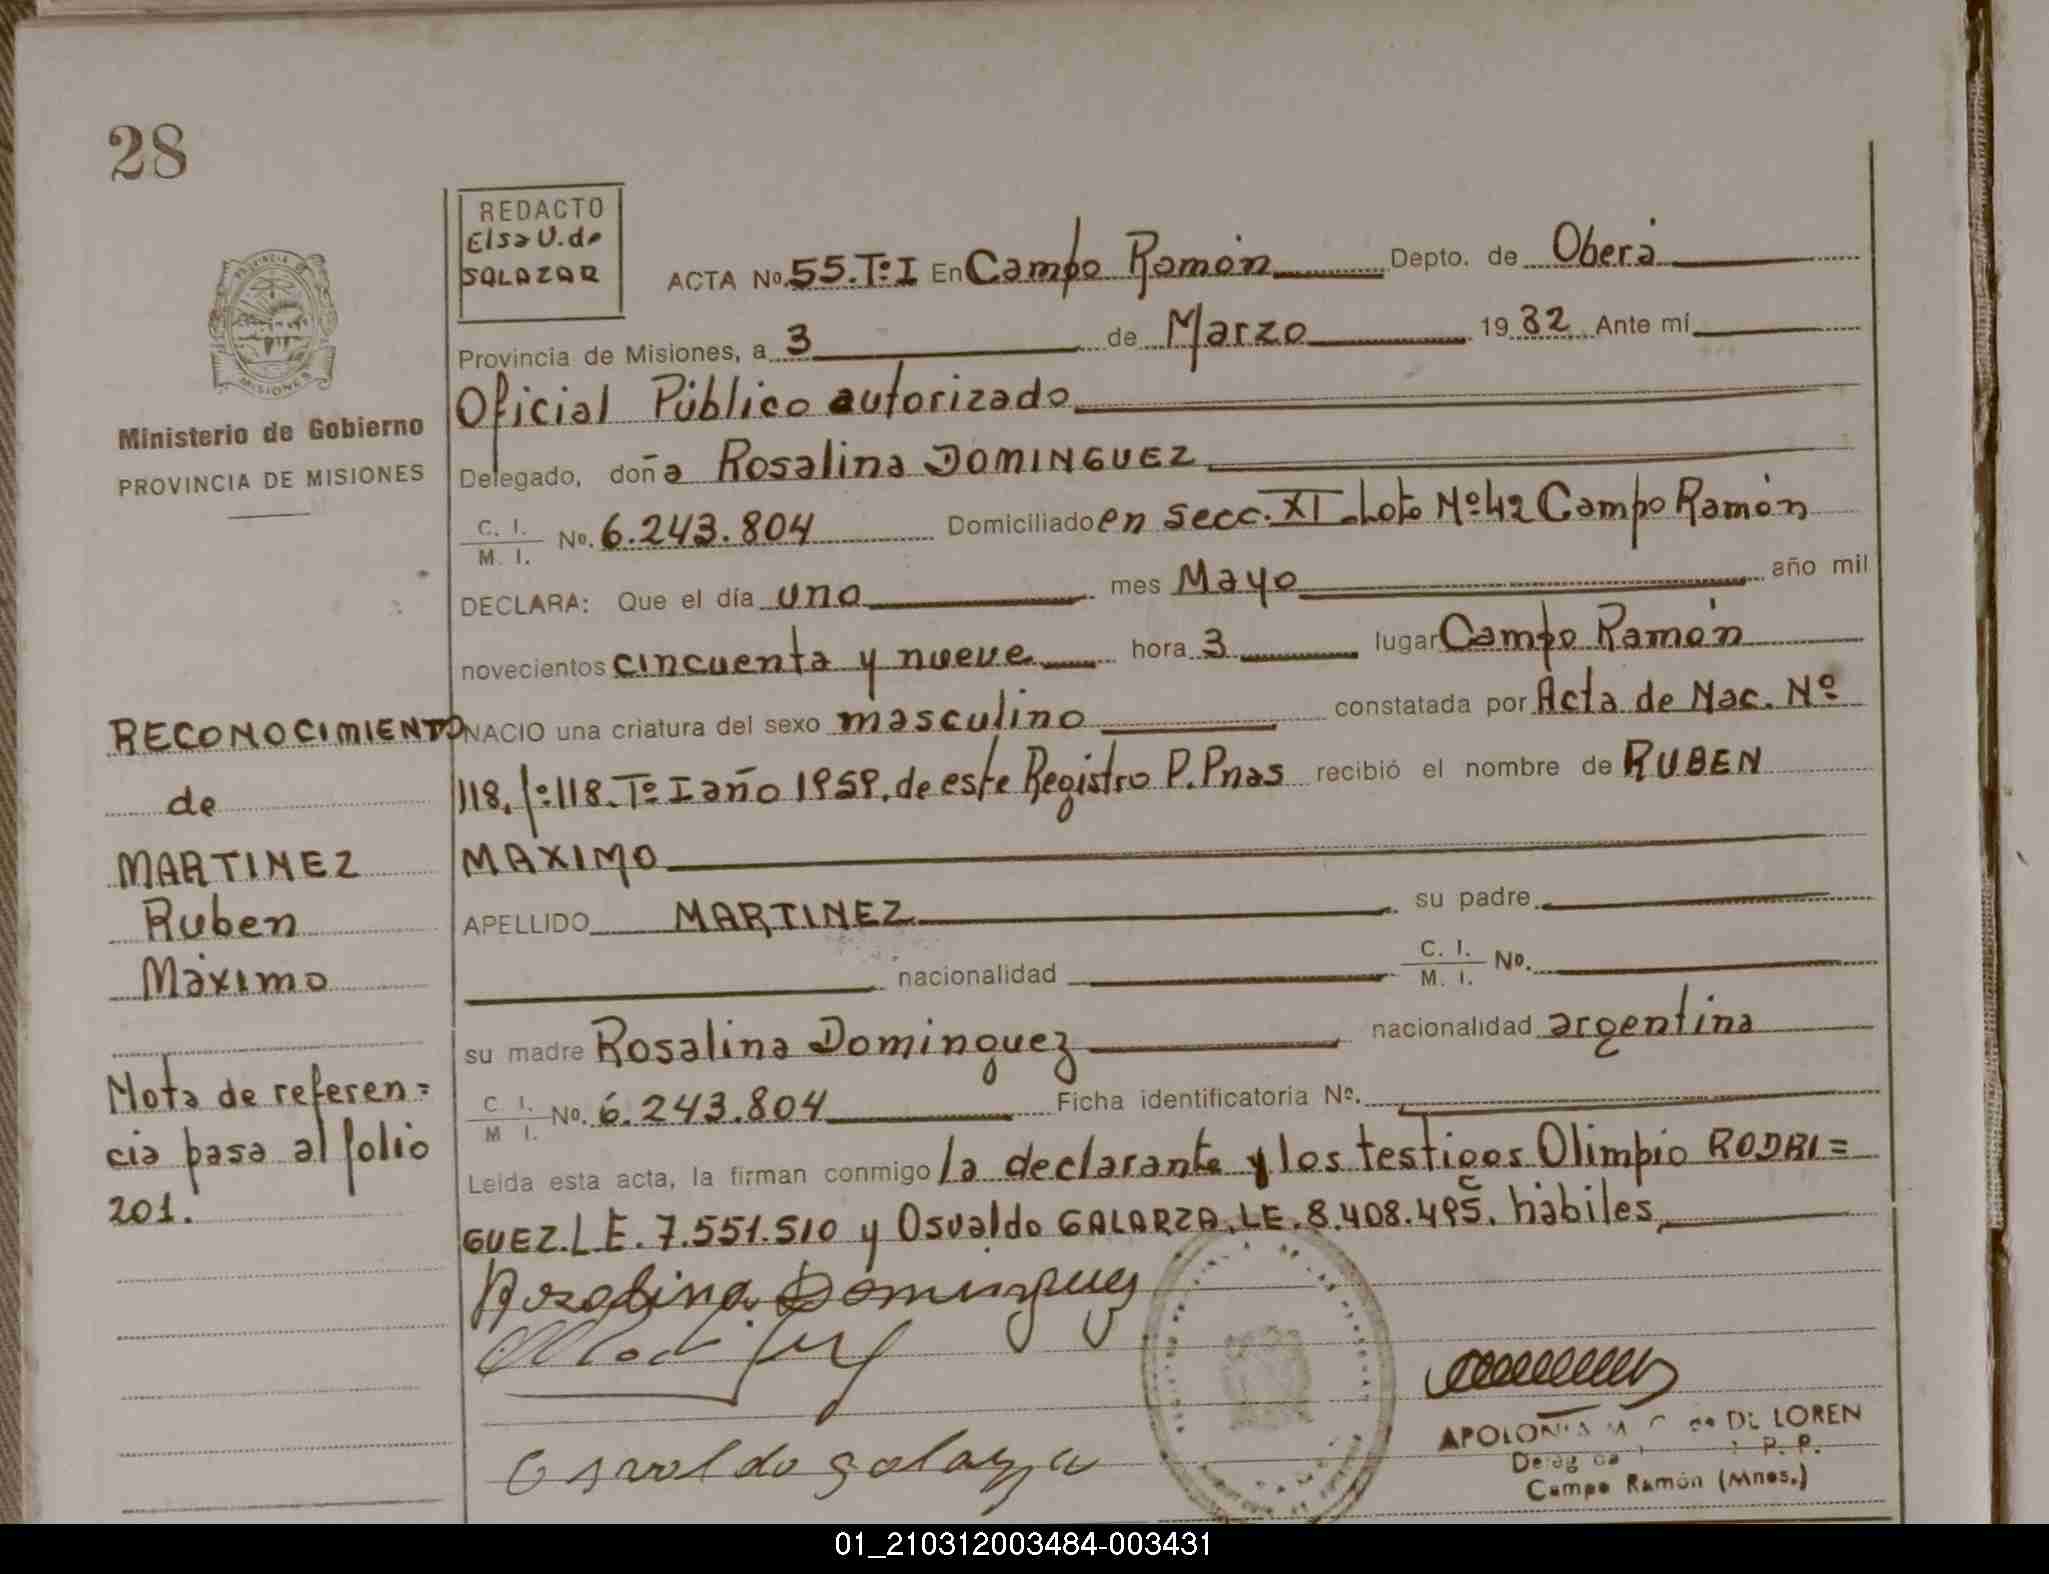 28
REDACTO
Elsa U. de
SALAZAR
ACTA No. 55. Tº I En Campo Ramón Depto. de Oberá
Provincia de Misiones, a 3 de Marzo 1982 Ante mí
Oficial Público autorizado
Delegado, doña Rosalina DOMINGUEZ
C. I.
M. I. No. 6.243.804 Domiciliado en secc. XI. Loto Nº 42 Campo Ramón
DECLARA: Que el día uno mes Mayo año mil
novecientos cincuenta y nueve hora 3 lugar Campo Ramón
NACIO una criatura del sexo masculino constatada por Acta de Nac. Nº
118. fº 118. Tº I año 1959. de este Registro P. Pnas recibió el nombre de RUBEN
MAXIMO
APELLIDO MARTINEZ su padre
nacionalidad C. I.
M. I. No.
su madre Rosalina Dominguez nacionalidad argentina
C. I.
M. I. No. 6.243.804 Ficha identificatoria No.
Leida esta acta, la firman conmigo la declarante y los testigos Olimpio RODRI=
GUEZ. L E. 7.551.510 y Osvaldo GALARZA. LE. 8.408.495. hábiles
Rosalina Dominguez
Osvaldo galarza
APOLONIA M DE LOREN
P. P.
Campo Ramón (Mnes.)
PROVINCIA DE
MISIONES
Ministerio de Gobierno
PROVINCIA DE MISIONES
RECONOCIMIENTO
de
MARTINEZ
Ruben
Máximo
Nota de referen=
cia pasa al folio
201.
01_210312003484-003431